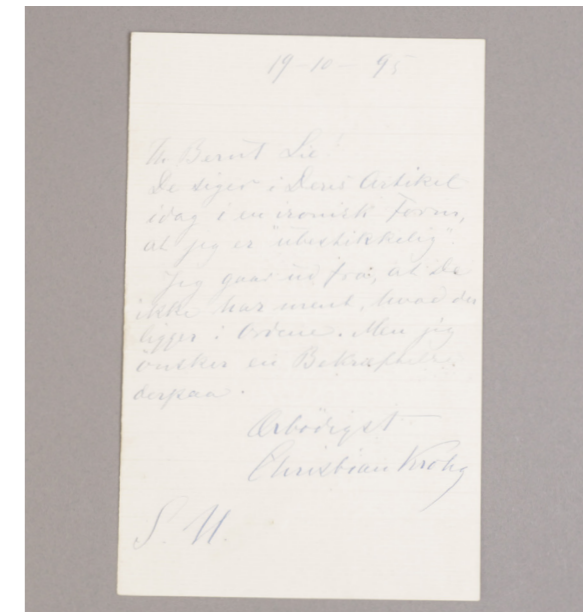 19-10-95
Hr. Bernt Lie!
De siger i Deres Artikel
idag i en ironisk Form,
at jeg er "ubestikkelig".
Jeg gaar ud fra, at De
ikke har ment, hvad der
ligger i Ordene. Men jeg
önsker en Bekræftelse
derpaa.
Ærbödigst
Christian Krohg
S. U.